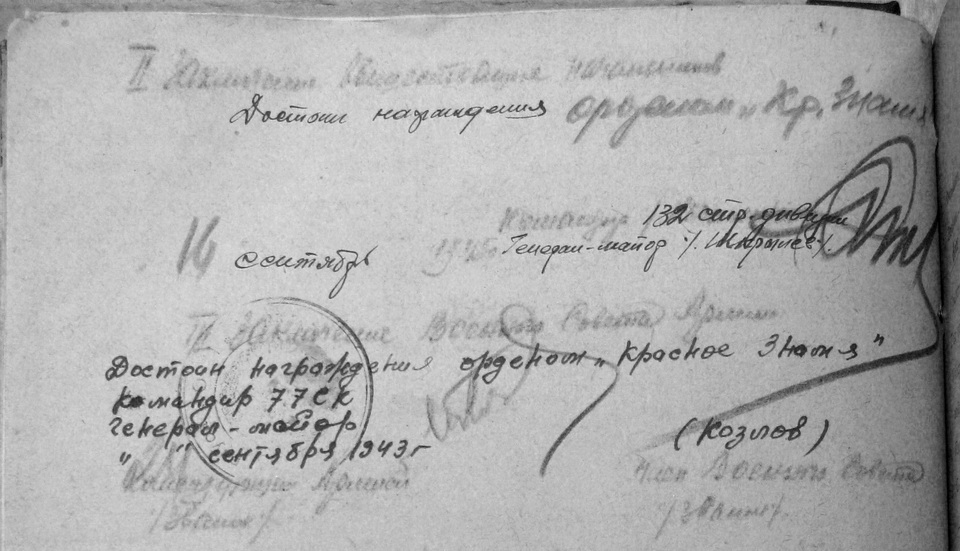 II Заключение вышестоящих начальников
Достоин награждения орденом „Кр. Знамя
Командир 132 стр. дивизии
16 сентябрь 1943 Генерал-майор /. Шкрылев /
III Заключение Военного Совета Армии
Достоин награждения орденом „Красное Знамя"
Командир 77 СК
Генерал-майор (Козлов)
" " сентября 1943 г
Командующий Армией Член Военного Совета
/звание/ /звание/